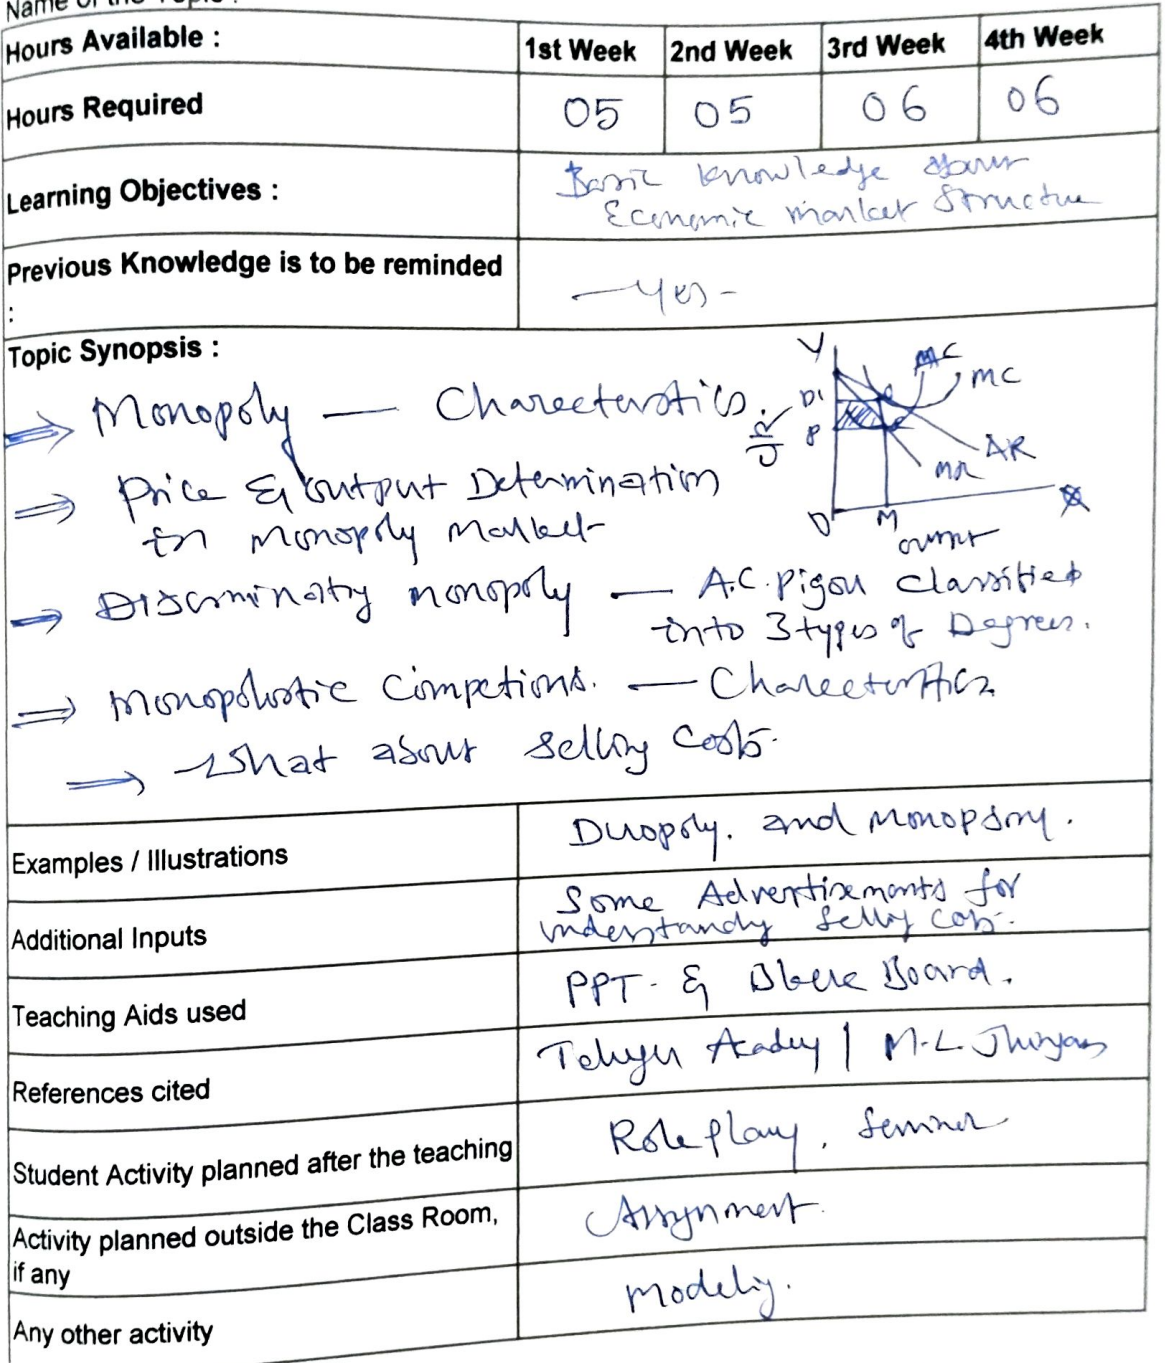 Name of the Topic :
Hours Available : 1st Week 2nd Week 3rd Week 4th Week
Hours Required 05 05 06 06
Learning Objectives : Basic knowledge about
Economic market Structure
Previous Knowledge is to be reminded
: - Yes -
Topic Synopsis :
⇒ Monopoly — Charecterstics.
⇒ Price & output Determination
in monopoly Market
⇒ Discriminatry monopoly — A.C. Pigou classified
into 3 types of Degrees.
⇒ Monopolostic Competions. — Charecterstics
⇒ What about selling Costs.
Y
P1
P
C/R
MC
MC
AR
MR
O
M
X
output
Examples / Illustrations Duopoly. and Monopsony.
Additional Inputs Some Advertisements for
understandg selly cots.
Teaching Aids used PPT - & Board.
References cited Telugu Academy | M.L. Jhingan
Student Activity planned after the teaching Role play, Seminar
Activity planned outside the Class Room,
if any Assignment.
Any other activity Modelig.